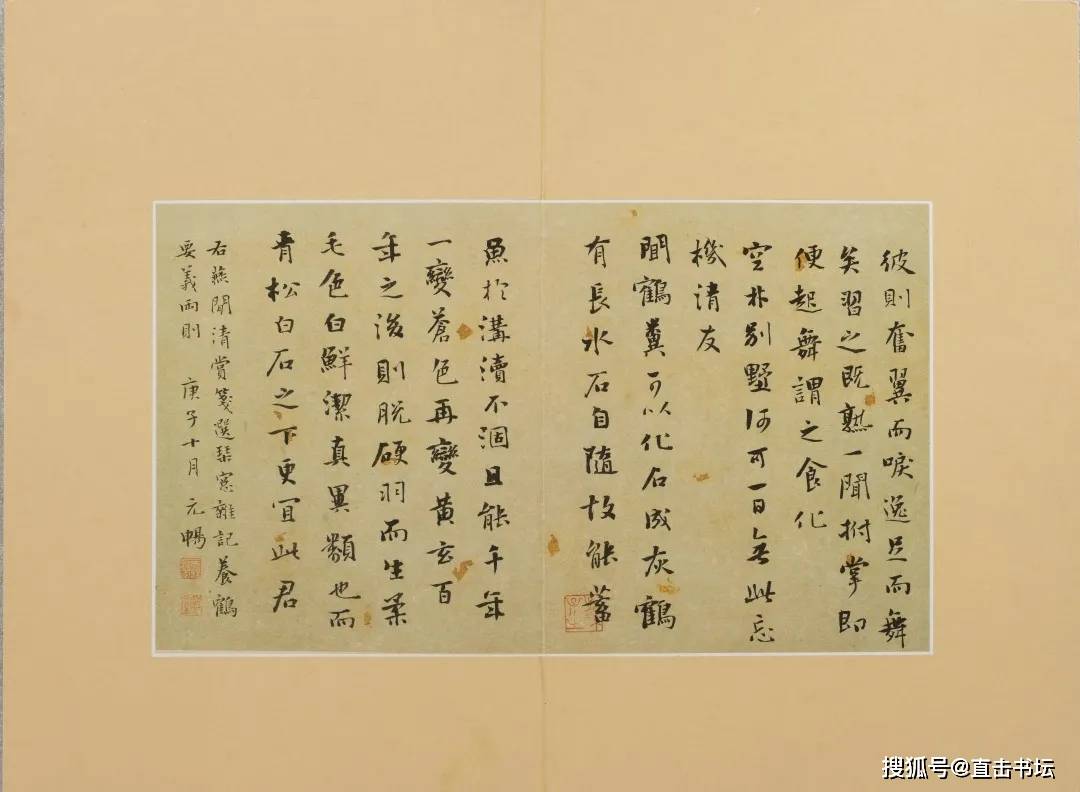 彼則奮翼而唳逸足而舞
矣習之既熟一聞拊掌即
便起舞謂之食化
空林別墅何可一日無此忘
機清友
聞鶴糞可以化石成灰鶴
有長水石自隨故能蓄
魚於溝瀆不涸且能千年
一變蒼色再變黃玄百
年之後則脫硬羽而生柔
毛色白鮮潔真異類也而
青松白石之下更宜此君
右燕閒清賞箋選琹窓雜記養鶴
要義兩則 庚子十月 元暢
搜狐号@直击书坛